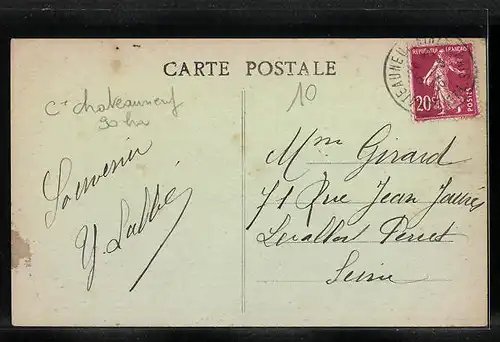 CARTE POSTALE
Cne chateauneuf
10
REPUBLIQUE FRANÇAISE
20c
POSTES
Souvenir
Y. Labbé
Mme Girard
71 Rue Jean Jaurès
Levallois Perret
Seine